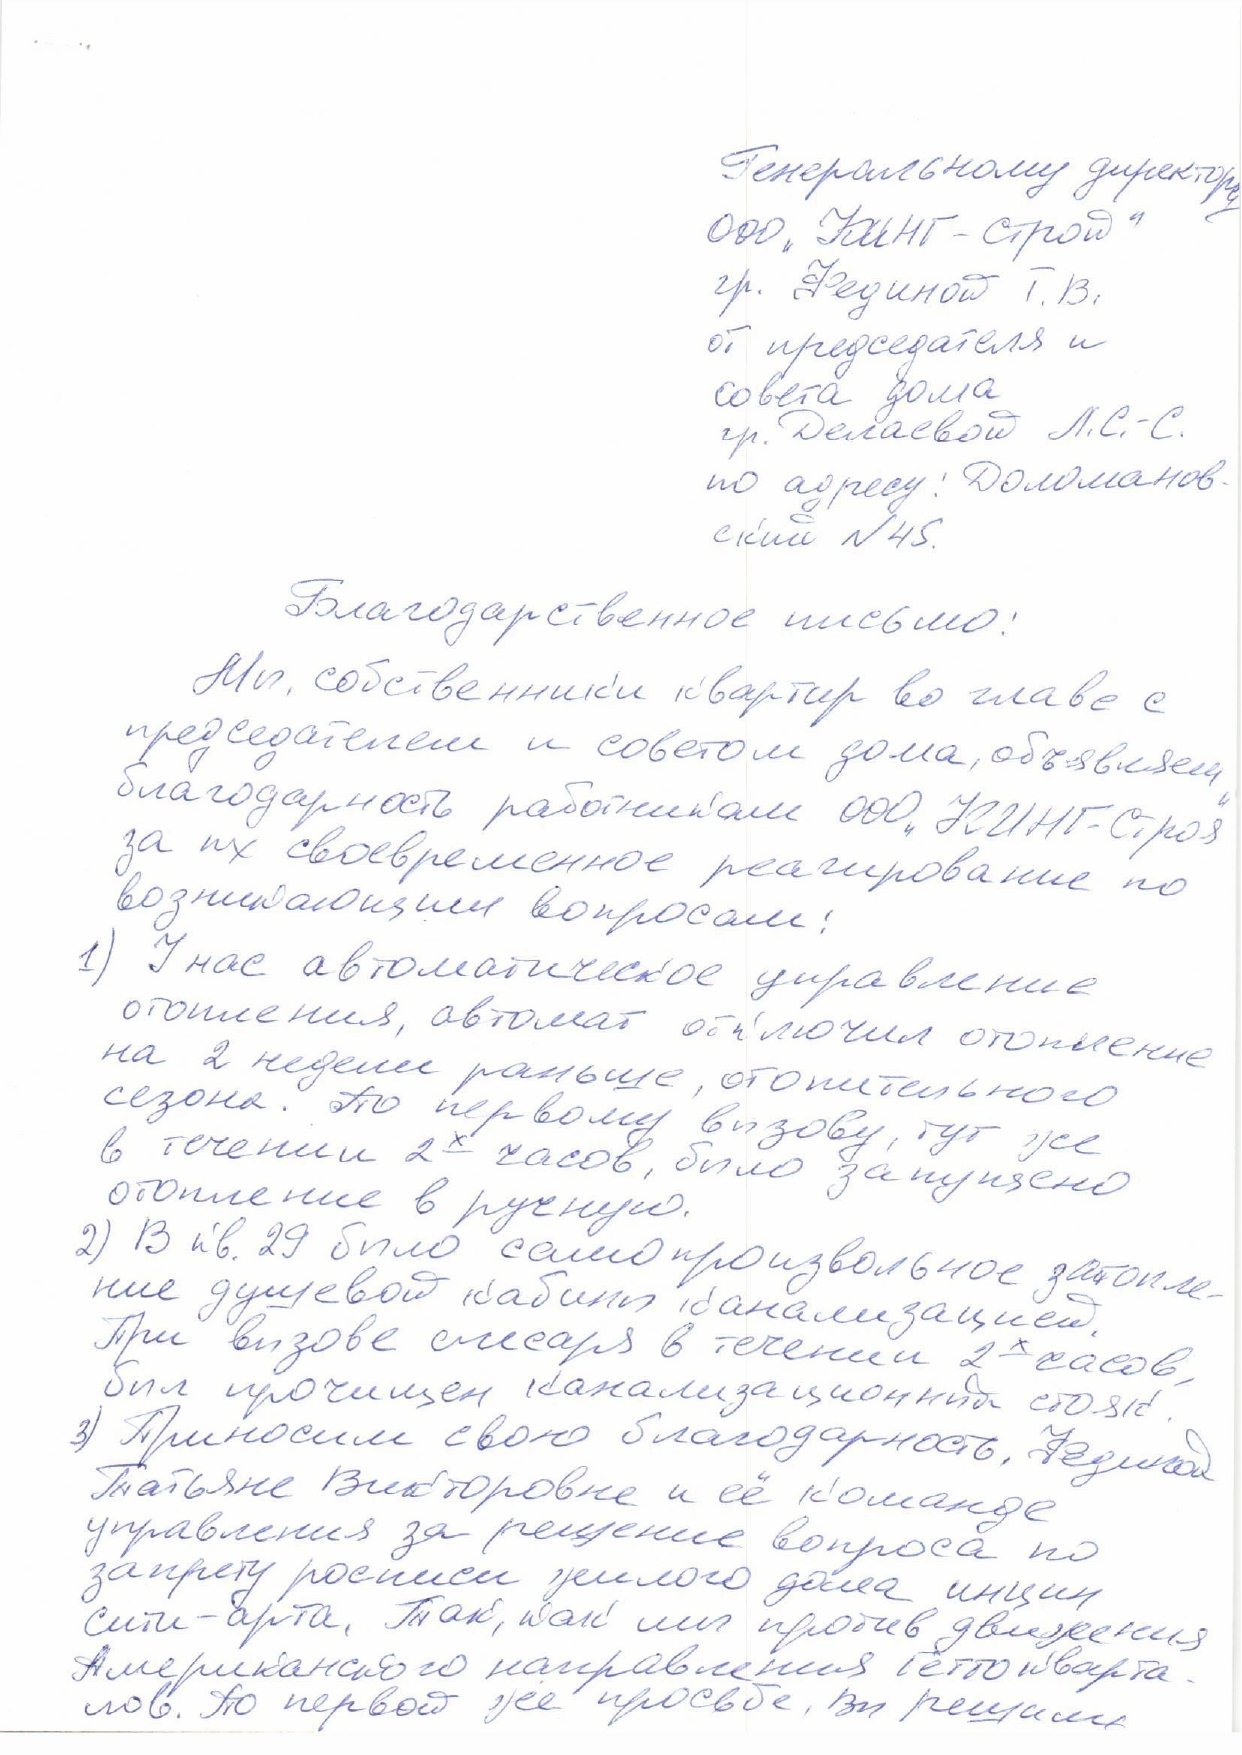 Генеральному директору
ООО „КИНГ-Строй"
гр. Фединой Т.В.
от председателя и
совета дома
гр. Делаевой Л.С.-С.
по адресу: Доломанов-
ский N45.
Благодарственное письмо:
Мы, собственники квартир во главе с
председателем и советом дома, объявляем
благодарность работникам ООО „КИНГ-Строй"
за их своевременное реагирование по
возникающим вопросам:
1) У нас автоматическое управление
отопления, автомат отключил отопление
на 2 недели раньше, отопительного
сезона. По первому вызову, тут же
в течении 2х часов, было запущено
отопление в ручную.
2) В кв. 29 было самопроизвольное затопле-
ние душевой кабины канализацией.
При вызове слесаря в течении 2х часов,
был прочищен канализационный стояк.
3) Приносим свою благодарность, Фединой
Татьяне Викторовне и её команде
управления за решение вопроса по
запрету росписи жилого дома
сити-арта. Так, как мы против движения
Американского направления Геттокварта-
лов. По первой же просьбе, вы решили